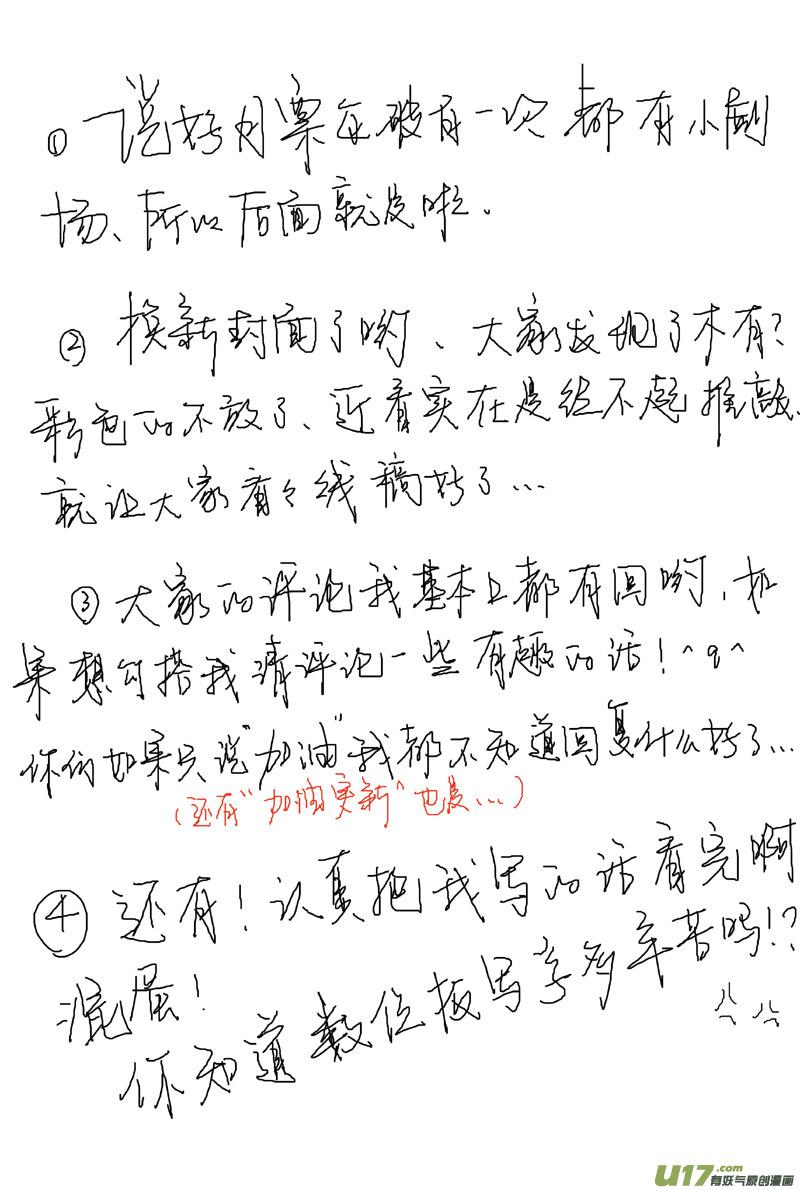 ① 说好月票每破百一次都有小剧
场、所以后面就是啦。
② 换新封面了哟、大家发现了木有?
彩色的不放了、近看实在是经不起推敲、
就让大家看々线稿好了...
③ 大家的评论我基本上都有回哟，如
果想勾搭我请评论一些有趣的话！^q^
你们如果只说"加油"我都不知道回复什么好了...
（还有"加油更新"也是...）
④ 还有！认真把我写的话看完啊
混蛋！
你知道数位板写字多辛苦吗!?
U17.com
有妖气原创漫画